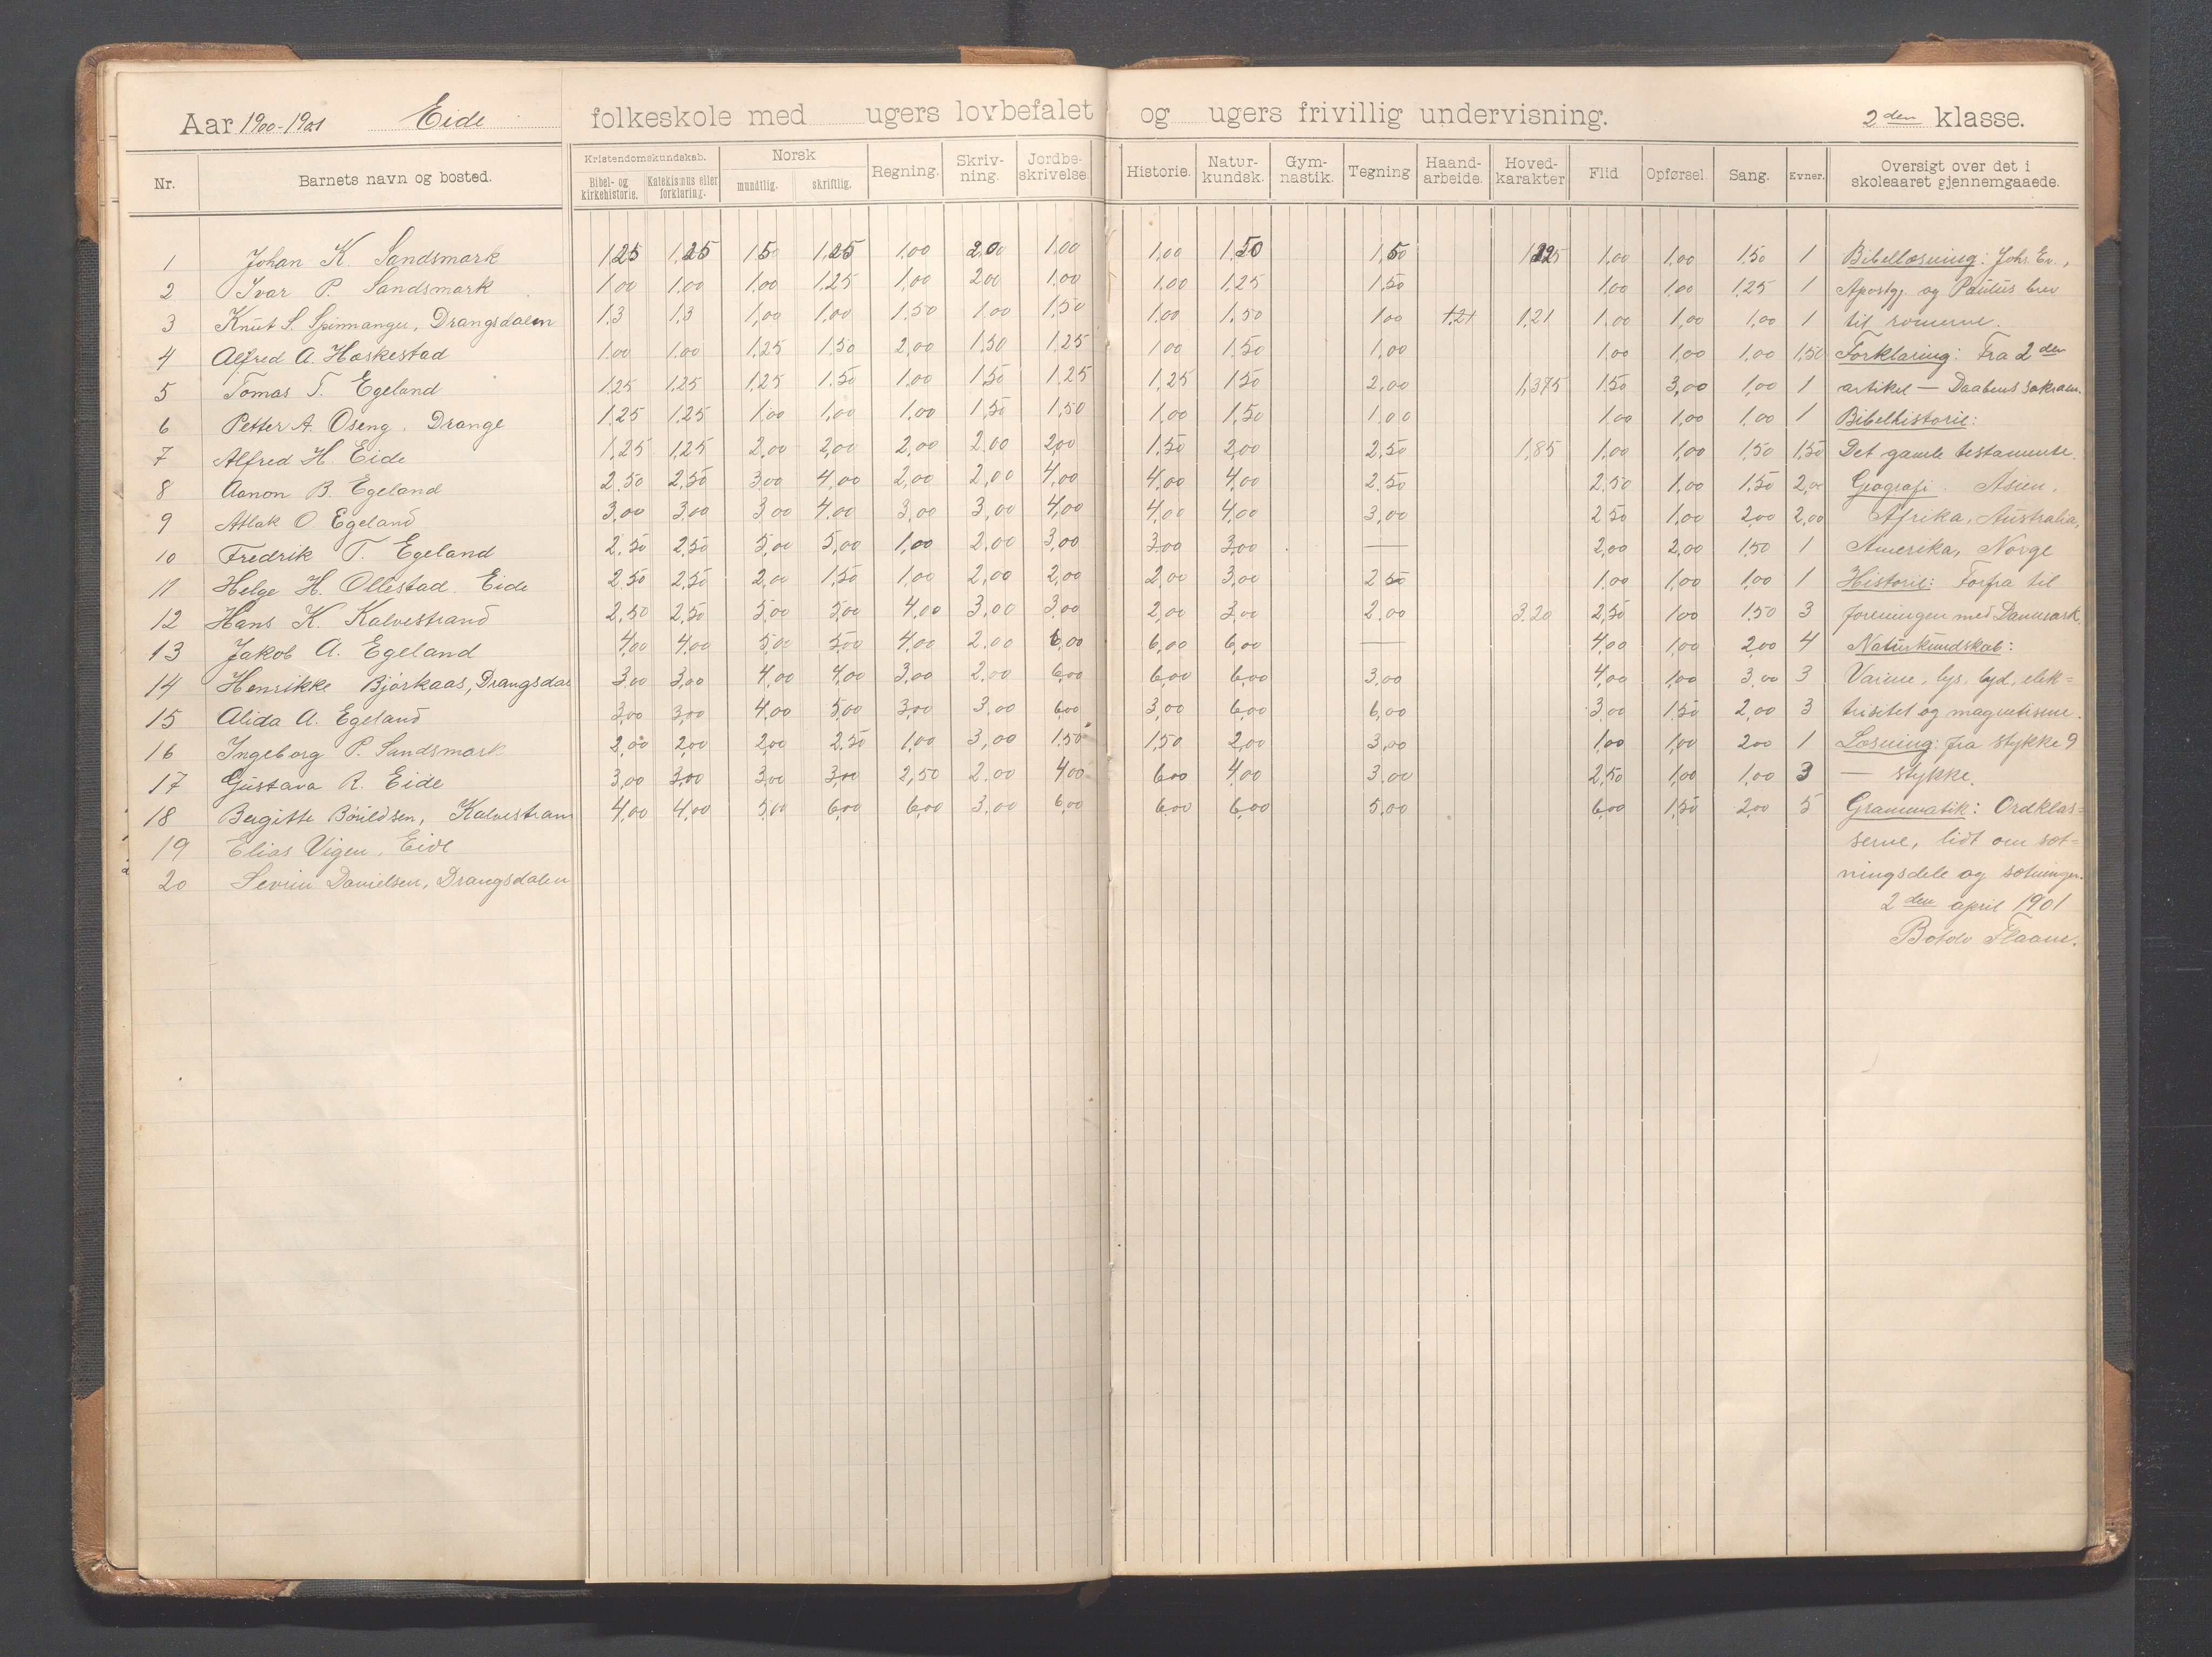 Aar 1900-1901 Eide folkeskole med ugers lovbefalet og ugers frivillig undervisning. 2den klasse.
Nr. Barnets navn og bosted. Kristendomskundskab. Bibel- og kirkehistorie. Katekismus eller forklaring. Norsk mundtlig. skriftlig. Regning. Skriv-ning. Jordbe-skrivelse. Historie. Natur-kundsk. Gym-nastik. Tegning. Haand-arbeide. Hoved-karakter Flid Opførsel. Sang. Evner. Oversigt over det i skoleaaret gjennemgaaede.
1 Johan K. Sandsmark 1,25 1,25 1,50 1,25 1,00 2,00 1,00 1,00 1,50 1,50 1,00 1,00 1,50 1 Bibellæsning: Johs Ev.,
2 Ivar P. Sandsmark 1,00 1,00 1,00 1,25 1,00 2,00 1,00 1,00 1,25 1,50 1,00 1,00 1,25 1 Apostgj. og Paulus brev
3 Knut S. Spinnanger, Drangsdalen 1,3 1,3 1,00 1,00 1,50 1,00 1,50 1,00 1,50 1,00 1,21 1,21 1,00 1,00 1,00 1 til romerne.
4 Alfred A. Hæskestad 1,00 1,00 1,25 1,50 2,00 1,50 1,25 1,00 1,50 1,00 1,00 1,00 1,00 1,50 Forklaring: Fra 2den
5 Tomas T. Egeland 1,25 1,25 1,25 1,50 1,00 1,50 1,25 1,25 1,50 2,00 1,375 1,50 3,00 1,00 1 artikel — Daabens sakram.
6 Petter A. Oseng, Drange 1,25 1,25 1,00 1,00 1,00 1,50 1,50 1,00 1,50 1,00 1,00 1,00 1,00 1 Bibelhistorie:
7 Alfred H. Eide 1,25 1,25 2,00 2,00 2,00 2,00 2,00 1,50 2,00 2,50 1,85 1,00 1,00 1,50 1,50 Det gamle testamente.
8 Aanon B. Egeland 2,50 2,50 3,00 4,00 2,00 2,00 4,00 4,00 4,00 2,50 2,50 1,00 1,50 2,00 Geografi. Asien,
9 Atlak O Egeland 3,00 3,00 3,00 4,00 3,00 3,00 4,00 4,00 4,00 3,00 2,50 1,00 2,00 2,00 Afrika, Australia,
10 Fredrik T. Egeland 2,50 2,50 5,00 5,00 1,00 2,00 3,00 3,00 3,00 — 2,00 2,00 1,50 1 Amerika, Norge
11 Helge H. Ollestad Eide 2,50 2,50 2,00 1,50 1,00 2,00 2,00 2,00 3,00 2,50 1,00 1,00 1,00 1 Historie: Forfra til
12 Hans K. Kalvestrand 2,50 2,50 5,00 5,00 4,00 3,00 3,00 2,00 3,00 2,00 3,20 2,50 1,00 1,50 3 foreningen med Danmark
13 Jakob A. Egeland 4,00 4,00 5,00 5,00 4,00 2,00 6,00 6,00 6,00 — 4,00 1,00 2,00 4 Naturkundskab:
14 Henrikke Bjørkaas, Drangsdal 3,00 3,00 4,00 4,00 3,00 2,00 6,00 6,00 6,00 3,00 4,00 1,00 3,00 3 Varme, lys, lyd, elek=
15 Alida A. Egeland 3,00 3,00 4,00 5,00 3,00 3,00 6,00 3,00 6,00 6,00 3,00 1,50 2,00 3 trisitet og magnetisme.
16 Ingeborg P. Sandsmark 2,00 2,00 2,00 2,50 1,00 3,00 1,50 1,50 2,00 3,00 1,00 1,00 2,00 1 Læsning: fra stykke 9
17 Gustava R. Eide 3,00 3,00 3,00 3,00 2,50 2,00 4,00 6,00 4,00 3,00 2,50 1,00 1,00 3 — stykke.
18 4,00 4,00 5,00 6,00 6,00 3,00 6,00 6,00 6,00 5,00 6,00 1,50 2,00 5 Grammatik: Ordklas=
19 Elias Vigen, Eide serne, lidt om sæt=
20 Sevrin Danielsen, Drangsdalen ningsdele og sætninger.
2den april 1901